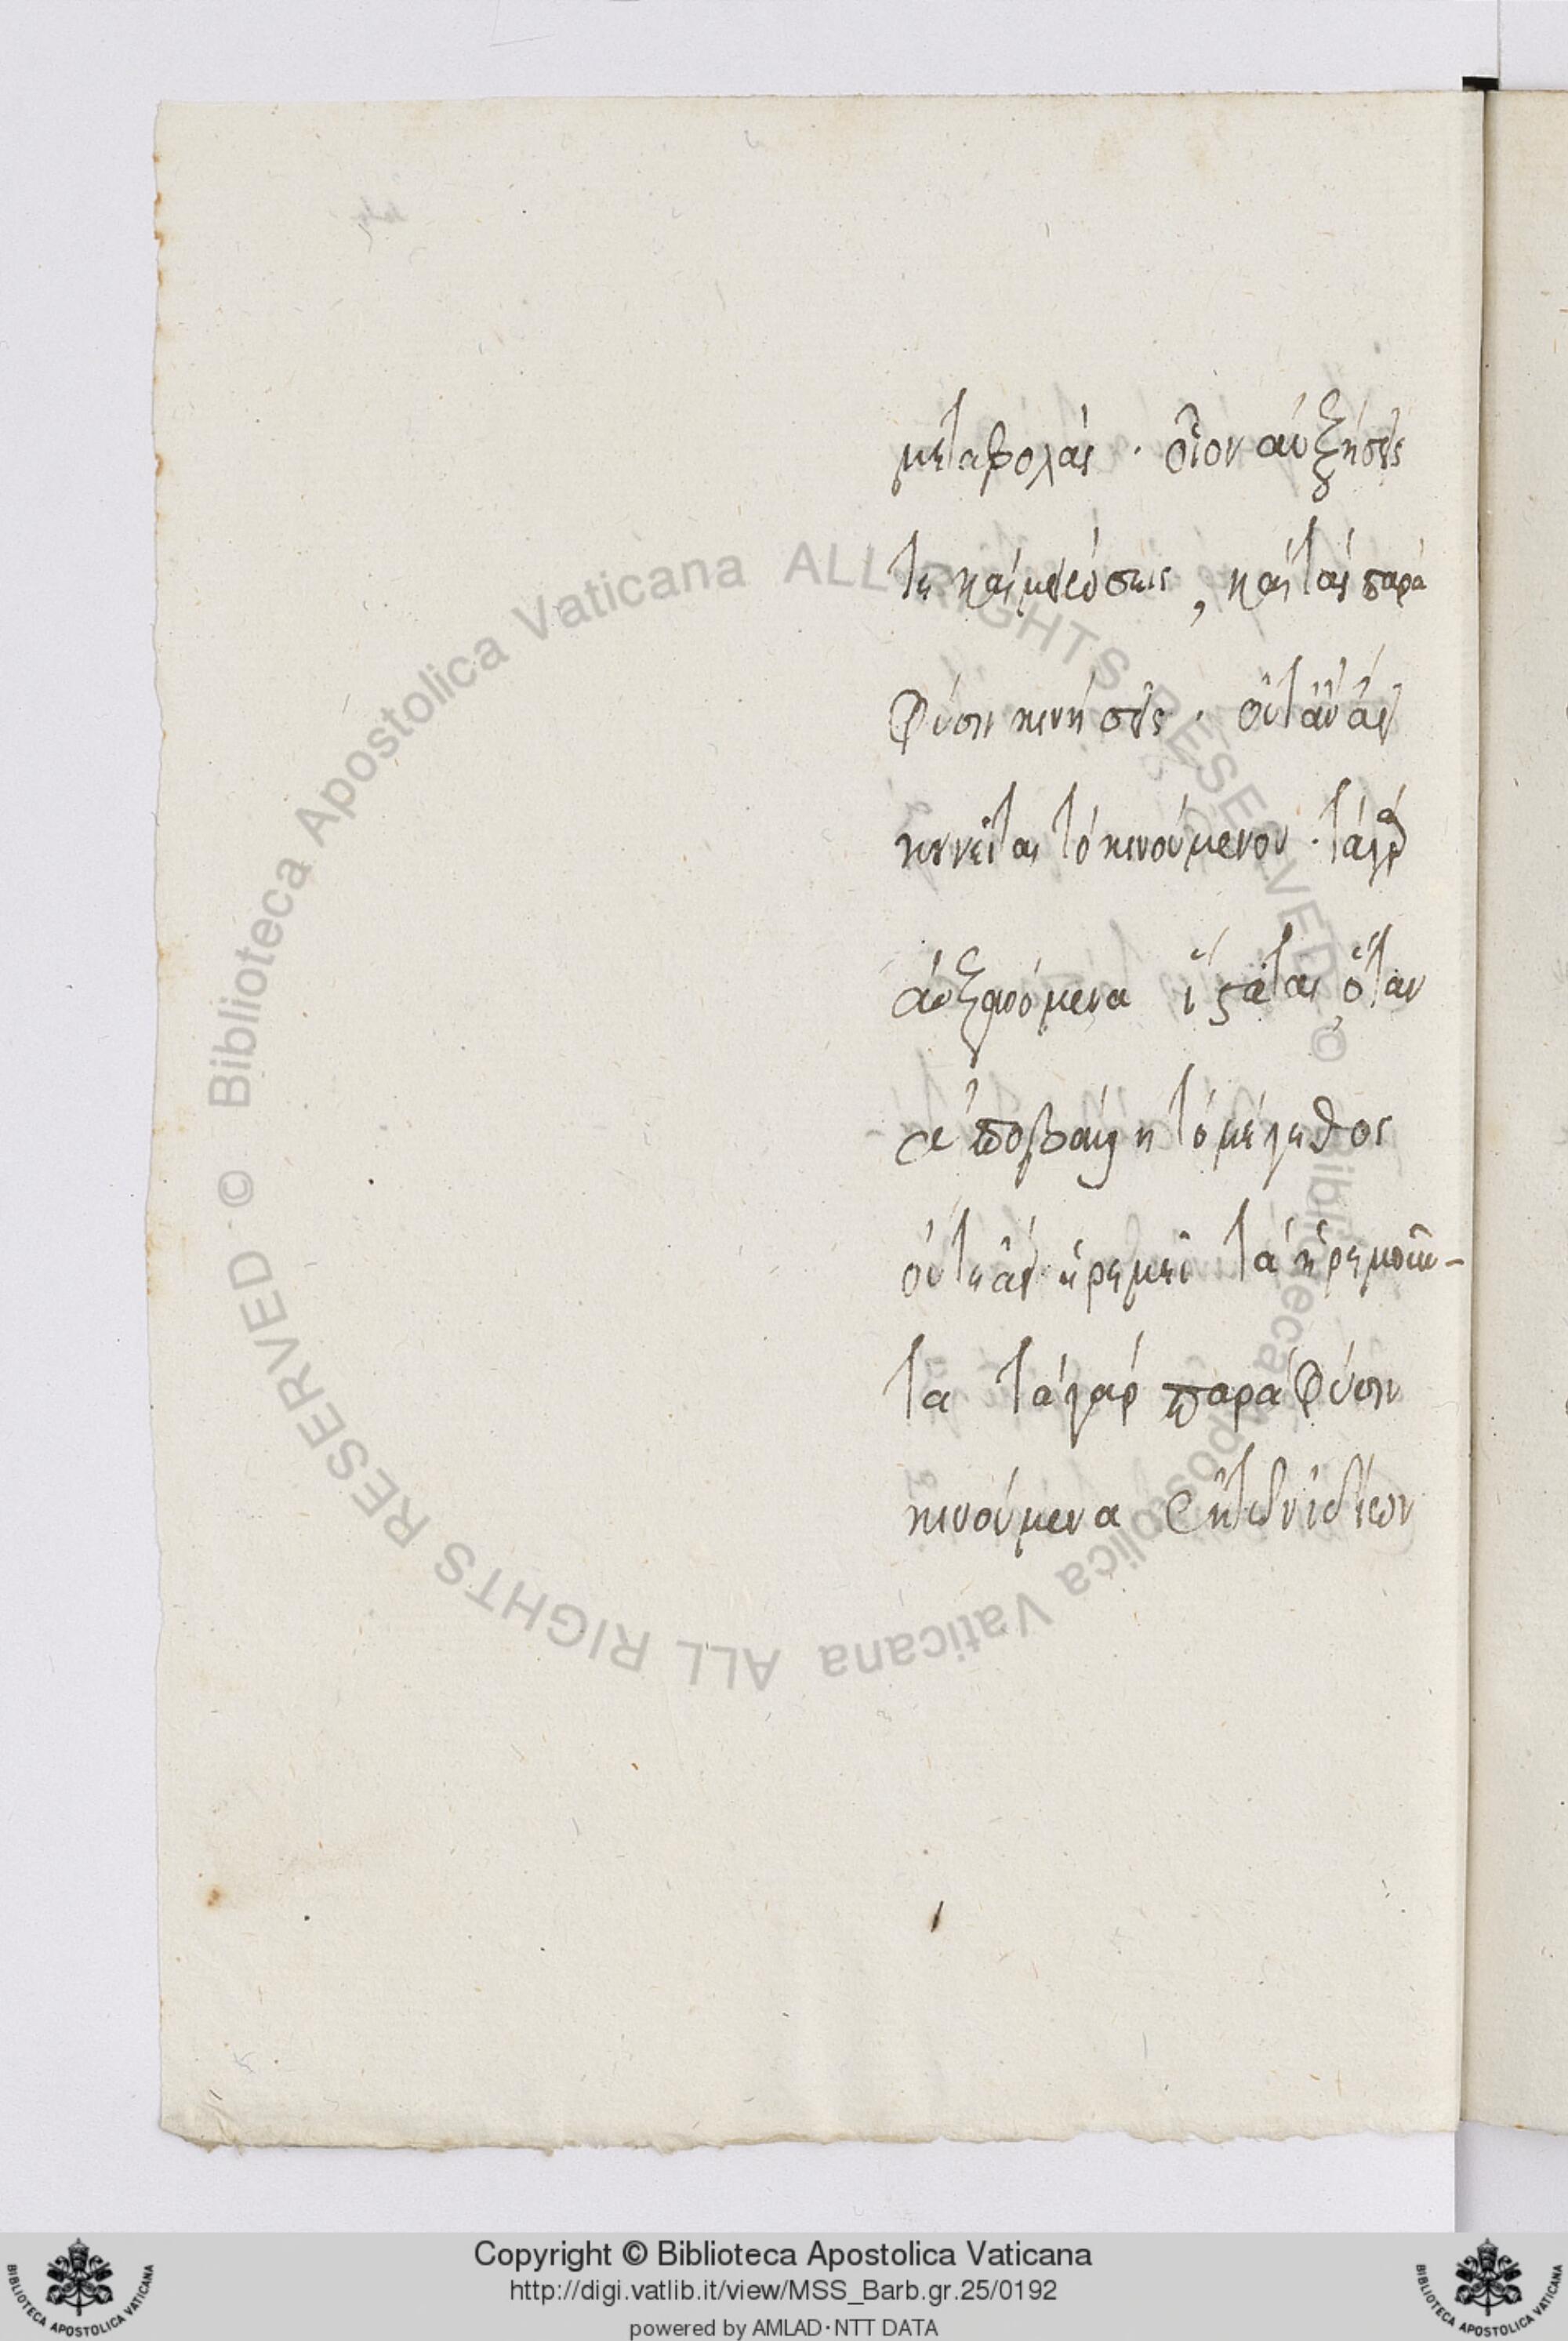 μεταβολὰς · οἷον αὐξήσεις
τε καὶ μειώσεις, καὶ τὰς παρὰ
φύσιν κινήσεις · οὔτ' ἂν ἀεὶ
κινεῖται τὸ κινούμενον · τὰ γὰρ
αὐξανόμενα ἵσταται, ὅταν
ἀπολάβῃ τὸ μέγεθος
οὔτε ἀεὶ ἠρεμεῖ τὰ ἠρεμοῦν-
τα τὰ γὰρ παρὰ φύσιν
κινούμενα ἐκ τῶν ἰδίων
Copyright © Biblioteca Apostolica Vaticana
http://digi.vatlib.it/view/MSS_Barb.gr.25/0192
powered by AMLAD·NTT DATA
© Biblioteca Apostolica Vaticana ALL RIGHTS RESERVED
© Biblioteca Apostolica Vaticana ALL RIGHTS RESERVED
BIBLIOTECA APOSTOLICA VATICANA
BIBLIOTECA APOSTOLICA VATICANA